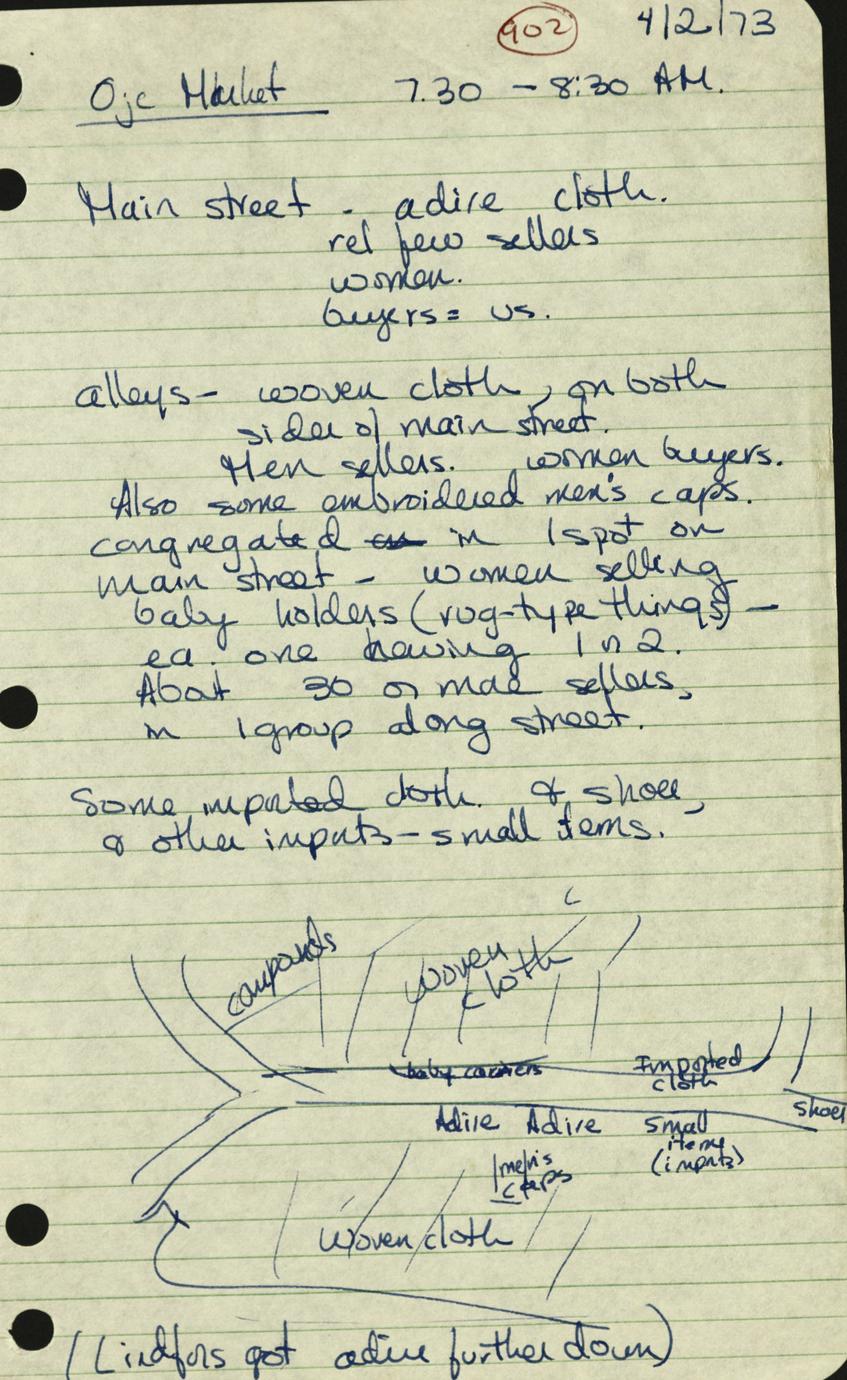 902 4/2/73
Oje Market 7.30 - 8:30 AM.
Main street - adire cloth.
rel few sellers
women.
buyers = us.
alleys - woven cloth, on both
sides of main street.
Men sellers. women buyers.
Also some embroidered men's caps.
congregated in 1 spot on
main street - women selling
baby holders (rug-type things) -
ea. one having 1 or 2.
About 30 or more sellers,
in 1 group along street.
Some imported cloth. & shoes,
& other imports - small items.
C
compounds
Woven
cloth
baby carriers
Imported
cloth
shoes
Adire Adire small
items
(imports)
men's
caps
Woven cloth
(Lindfors got adire further down)